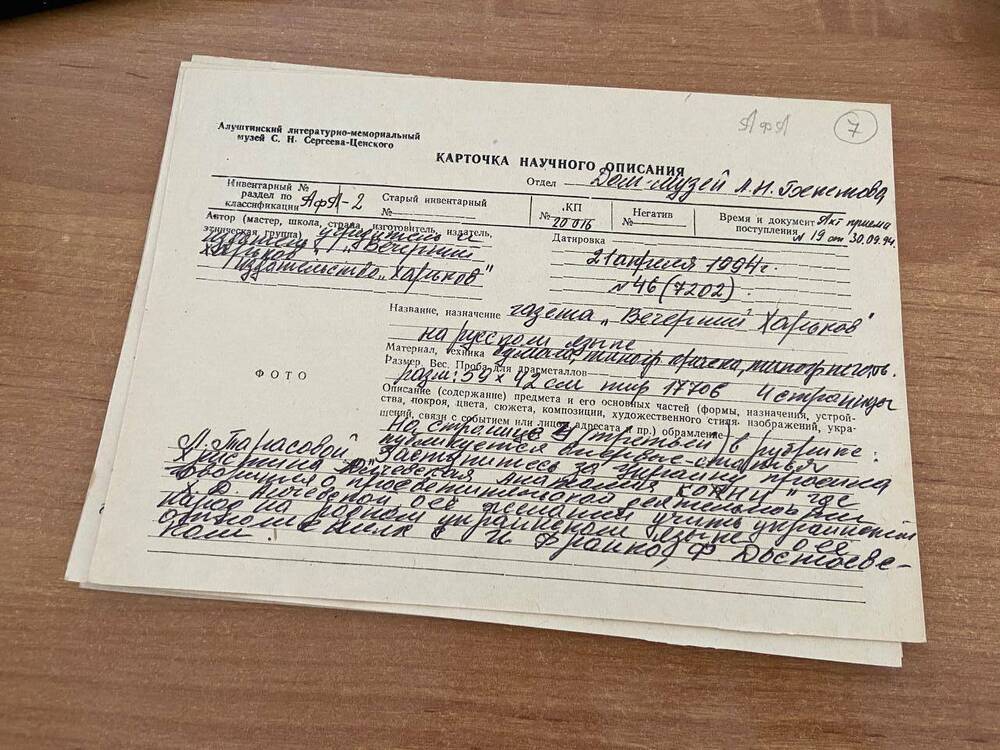 АфА
7
Алуштинский литературно-мемориальный
музей С. Н. Сергеева-Ценского
КАРТОЧКА НАУЧНОГО ОПИСАНИЯ
Отдел Дом-музей А.Н. Бекетова
Инвентарный №
раздел по
классификации АфА-2
Старый инвентарный
№
КП
№ 20016
Негатив
№
Время и документ Акт приема
поступления №19 от 30.09.94.
Автор (мастер, школа, страна, изготовитель, издатель,
этническая группа) учредитель и
издатель "Вечерний
Харьков"
издательство „Харьков"
Датировка
21 апреля 1994 г.
№46 (7202)
Название, назначение газета „Вечерний Харьков"
на русском языке
Материал, техника бумага, типогр краска, типогр печать.
Размер. Вес. Проба для драгметаллов
разм: 59 х 42 см тир 17706 4 страницы
ФОТО
Описание (содержание) предмета и его основных частей (формы, назначения, устрой-
ства, покроя, цвета, сюжета, композиции, художественного стиля изображений, укра-
шений, связи с событием или лицом, адресата и пр.) обрамление
На странице 3 (третьей) в рубрике:
публикуется впервые статья
Л. Тарасовой „Заступитесь за Украину просила
Христина Алчевская" где
о просветительской деятельности
Х.Д. Алчевской о её желании учить украинский
народ на родном украинском языке о её
отношениях с И Франко, Ф. Достоевс-
ким.